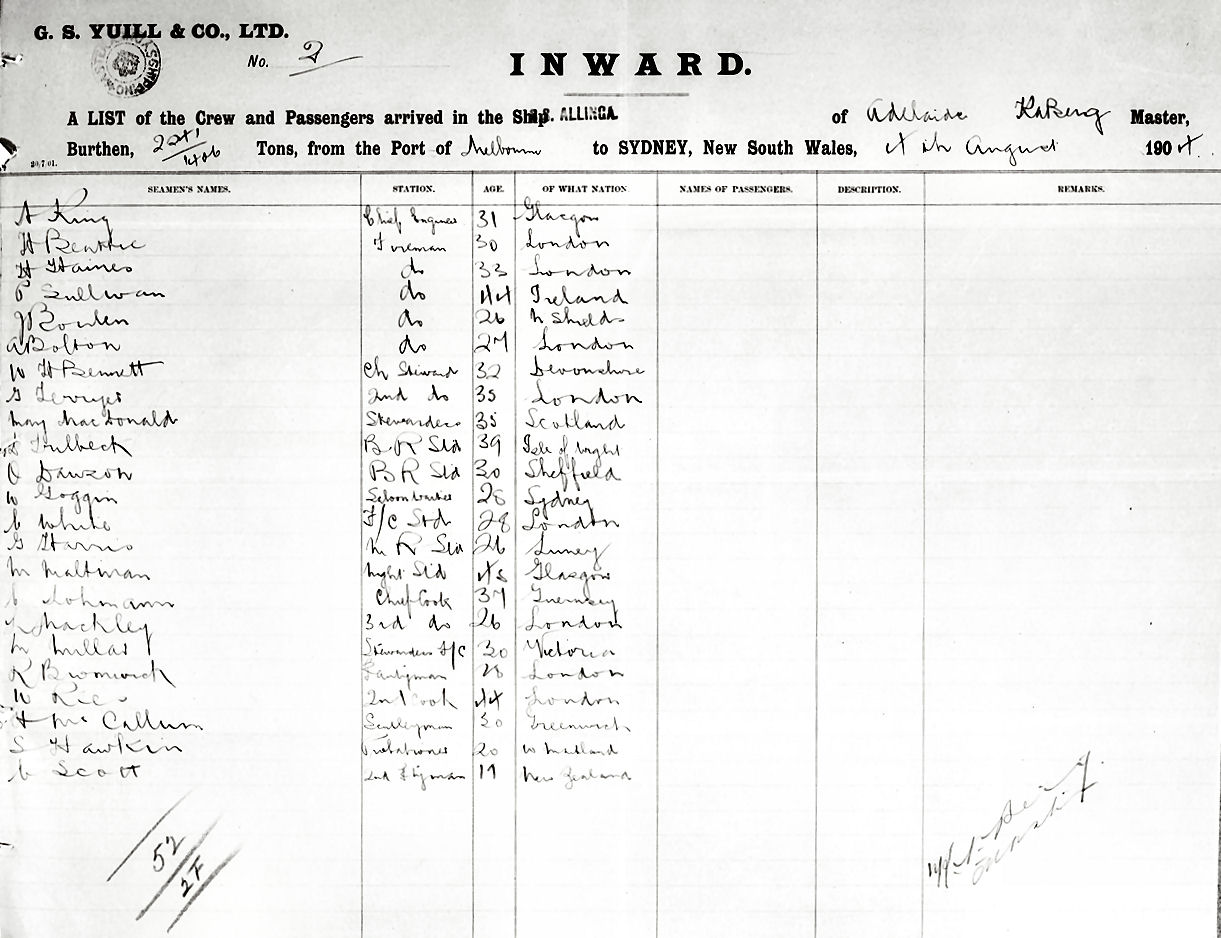 G. S. YUILL & CO., LTD.
No. 2
INWARD.
A LIST of the Crew and Passengers arrived in the Ship S.S. ALLINGA of Adelaide Master,
Burthen, 2241/1406 Tons, from the Port of Melbourne to SYDNEY, New South Wales, 4th August 1904.
20.7.01.
SEAMEN'S NAMES. STATION. AGE. OF WHAT NATION NAMES OF PASSENGERS. DESCRIPTION. REMARKS.
A King Chief Engineer 31 Glasgow
H Beattie Fireman 30 London
H Haines do 33 London
P Sullivan do 44 Ireland
J Bowlen do 26 N Shields
A Bolton do 27 London
W H Bennett Ch Steward 32 Devonshire
G 2nd do 35 London
May MacDonald Stewardess 35 Scotland
Fulbeck B R Std 39 Isle of Wight
O Dawson B R Std 30 Sheffield
W Goggin Saloon Waiter 28 Sydney
C White F/C Std 28 London
G Harris M R Std 26 Surrey
M Maltman Night Std 45 Glasgow
C Lohmann Chief Cook 37 Guernsey
Hackley 3rd do 26 London
M Millar Stewardess F/C 30 Victoria
R Bromwick Pantryman 28 London
W Rice 2nd Cook 44 London
H McCallum Sculleryman 30 Greenwich
S Hawkin Probationer 20 W Maitland
C Scott 2nd 19 New Zealand
52
27